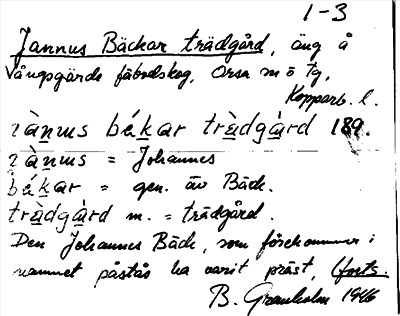 1-3
Jannus Bäckar trädgård, äng å
Vångsgärde fäbodskog, Orsa s:n o tg,
Kopparb. l.
ɪànus békar trädgàrd 189.
ɪànus = Johannes
békar = gen. av Bäck.
trädgàrd m. = trädgård.
Den Johannes Bäck, som förekommer i
namnet påstås ha varit präst, (forts.
B. Granholm 1946